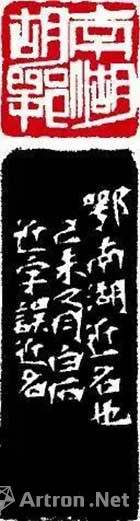 南湖
胡鄂
鄂南湖近名也
己未又月白石
近字誤近名
Artron.Net